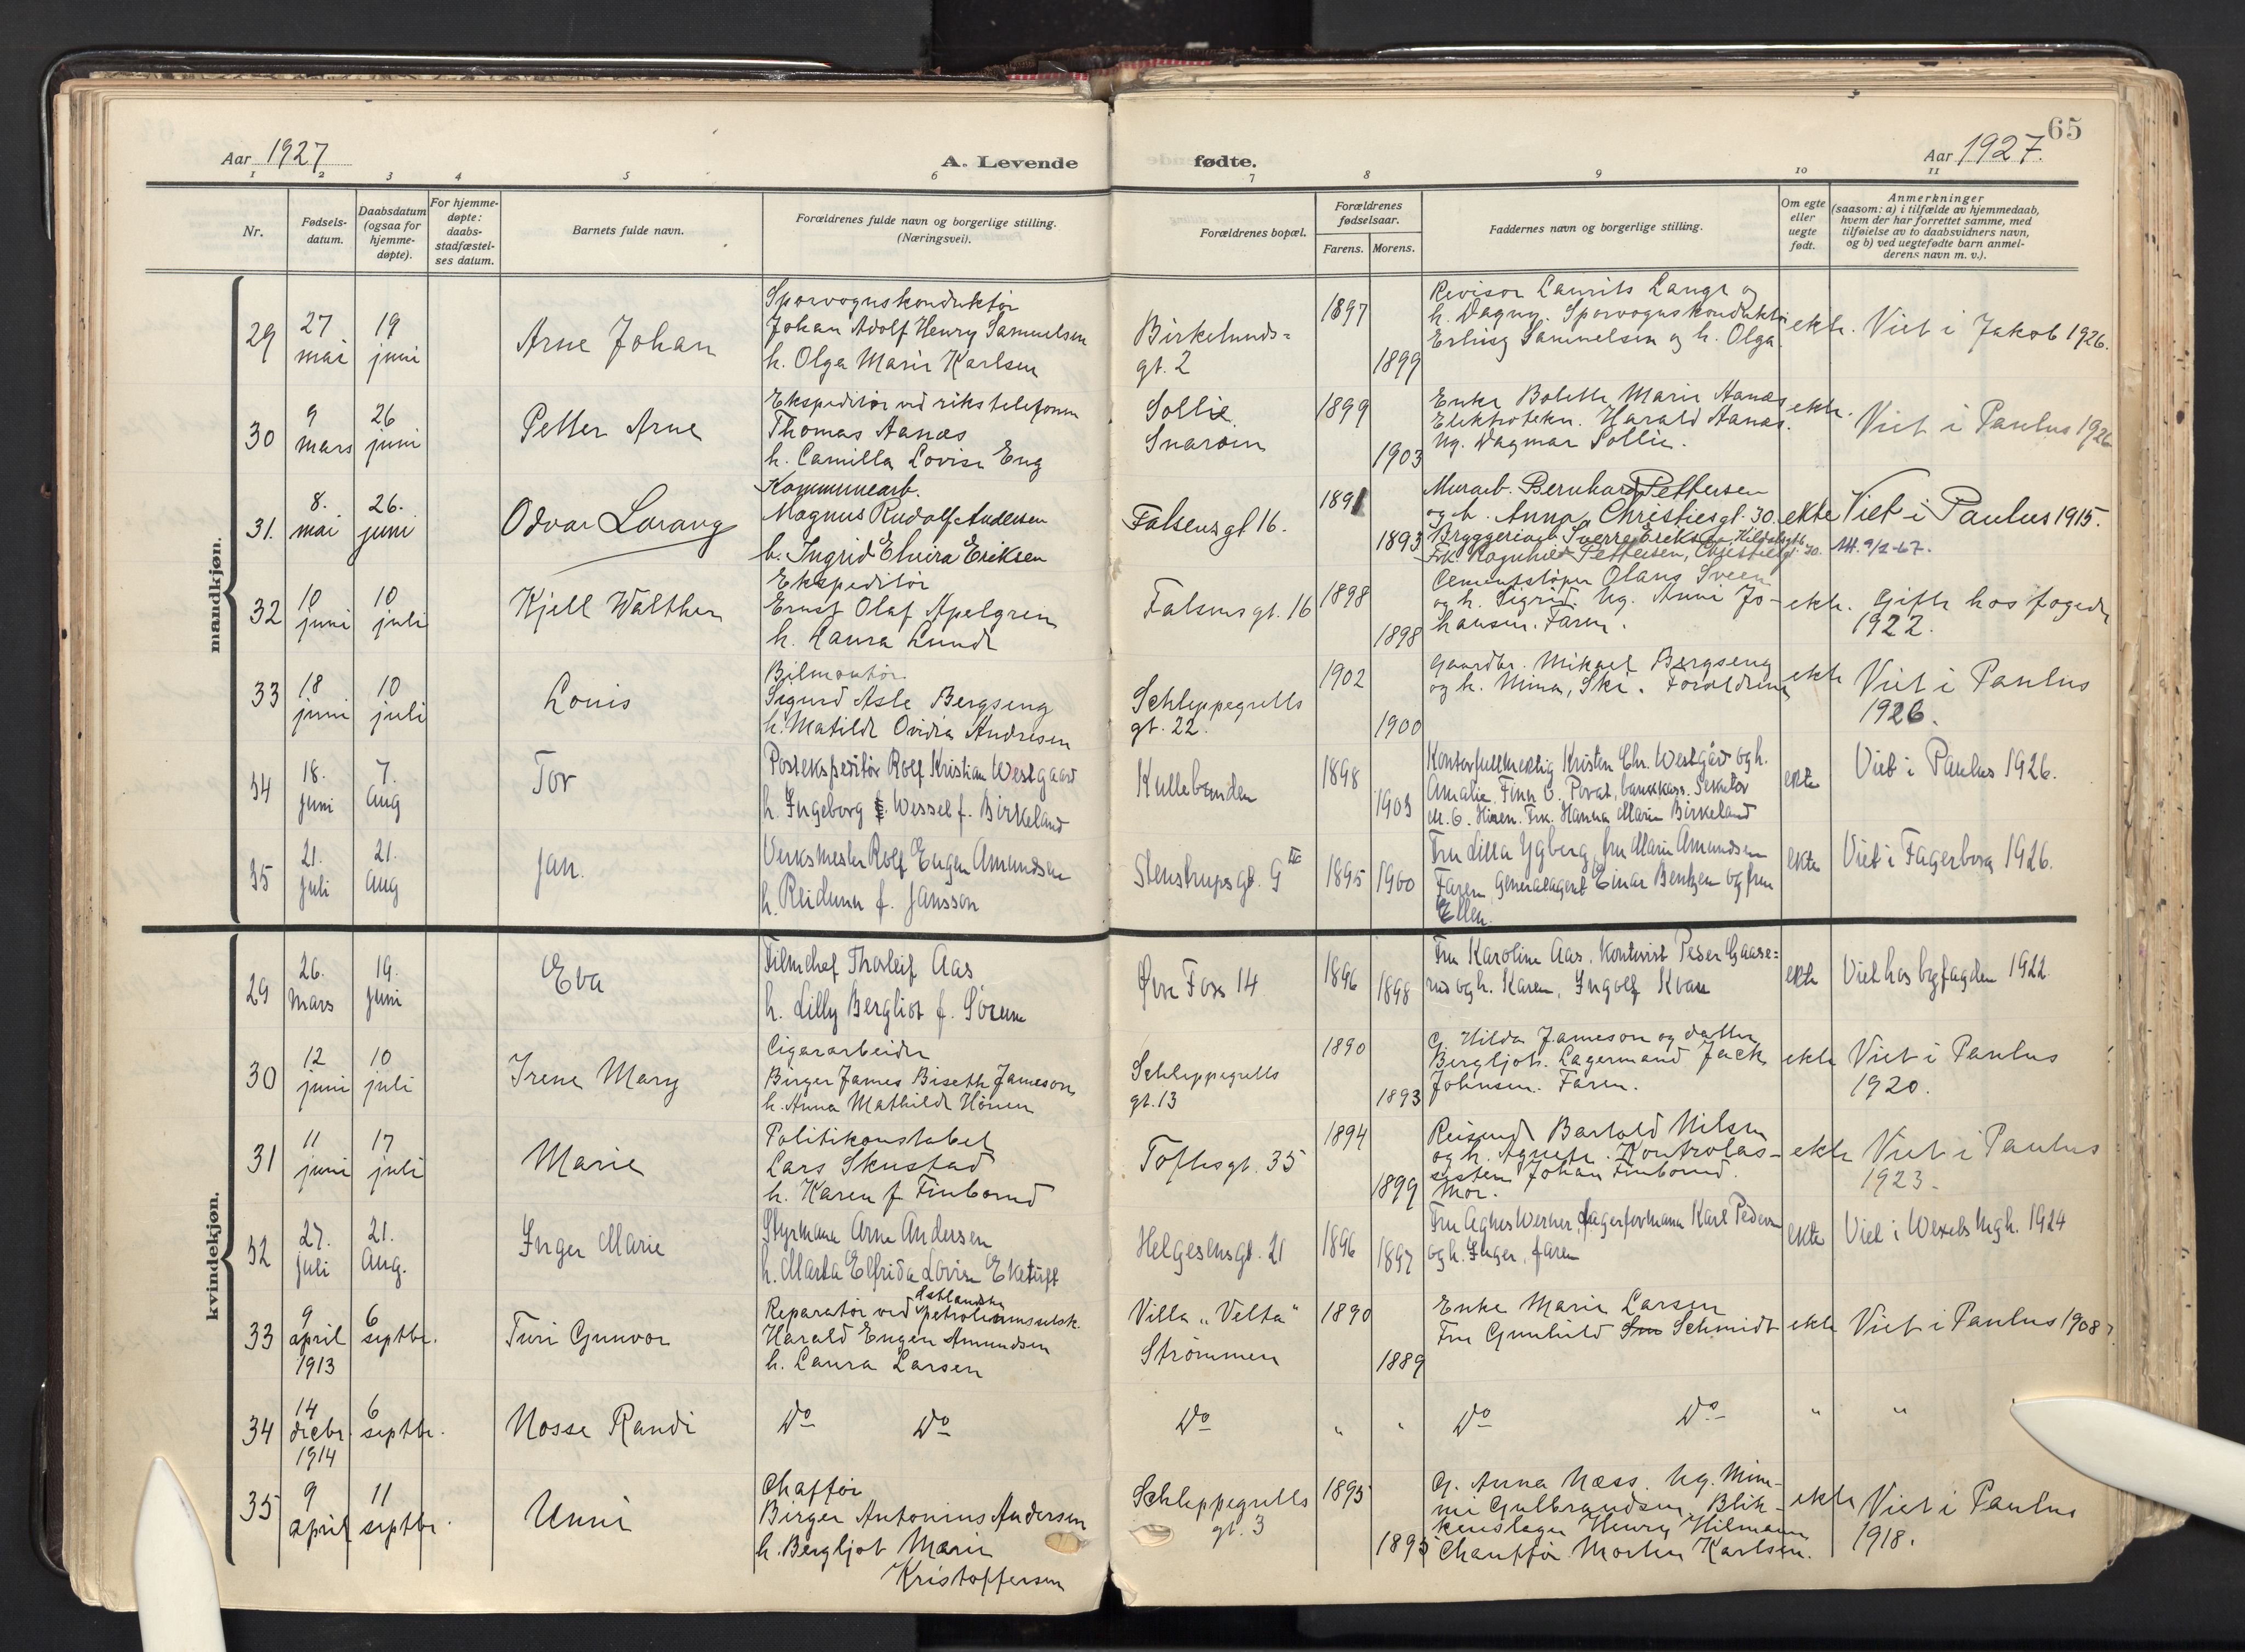 65
Aar 1927
A. Levende
fødte.
Aar 1927.
1 2 3 4 5 6 7 8 9 10 11
Nr.
Fødsels-
datum.
Daabsdatum
(ogsaa for
hjemme-
døpte).
For hjemme-
døpte:
daabs-
stadfæstel-
ses datum.
Barnets fulde navn.
Forældrenes fulde navn og borgerlige stilling.
(Næringsvei).
Forældrenes bopæl.
Forældrenes
fødselsaar.
Farens. Morens.
Faddernes navn og borgerlige stilling.
Om egte
eller
uegte
født.
Anmerkninger
(saasom: a) i tilfælde av hjemmedaab,
hvem der har forrettet samme, med
tilføielse av to daabsvidners navn,
og b) ved uegtefødte barn anmel-
derens navn m. v.).
mandkjøn.
29
27
mai
19
juni
Arne Johan
Sporvognskonduktør
Johan Adolf Henry Samuelsen
h. Olga Marie Karlsen
Birkelunds-
gt. 2
1897
1899
Revisor Laurits Lange og
h. Dagny. Sporvognskonduktør
Erling Samuelsen og h. Olga
ekte.
Viet i Jakob 1926.
30
9
mars
26
juni
Petter Arne
Ekspeditør ved rikstelefonen
Thomas Aanæs
h. Camilla Lovise Eng
Sollie
Snarøen
1899
1903
Enke Bolette Marie Aanæs
Elektrotekn. Harald Aanæs.
Ug. Dagmar Sollie.
ekte.
Viet i Paulus 1926
31.
8.
mai
26.
juni
Odvar Lorang
Kommunearb.
Magnus Rudolf Andersen
h. Ingrid Elvira Eriksen
Falsensgt 16.
1891
1893
Murarb. Bernhard Pettersen
og h. Anna, Christiesgt. 30.
Bryggeriarb. Sverre Eriksen
Frk. Ragnhild Pettersen, Christiesgt. 30.
ekte
Viet i Paulus 1915.
32
10
juni
10
juli
Kjell Walther
Ekspeditør
Ernst Olaf Apelgren
h. Laura Lunde
Falsensgt. 16
1898
1898
Cementstøper Olaus Sveen
og h. Sigrid. Ug. Anni Jo-
hansen. Faren.
ekte.
Gifte hos fogden
1922.
33
18
juni
10
juli
Louis
Bilmontør
Sigurd Asle Bergseng
h. Matilde Ovidia Andresen
Schleppegrells
gt. 22.
1902
1900
Gaardbr. Mikael Bergseng
og h. Mina, Ski. Forældrene
ekte
Viet i Paulus
1926.
34
18.
juni
7.
Aug
Tor
Postekspeditør Rolf Kristian Westgaard
h. Ingeborg Wessel f. Birkeland
Kullebunden
1898
1903
Kontorfullmektig Kristen Chr. Westgård og h.
Amalie. Finn
Frk. Hanna Marie Birkeland
ekte
Viet i Paulus 1926.
35
21.
juli
21.
Aug
Jan.
Verksmester Rolf Eugen Amundsen
h. Reidunn f. Jansson
Stenstrupsgt. 9
1895
1900
Fru Lilla Ygberg, fru Marie Amundsen
Faren, Generalagent Einar Bentzen og fru
Ellen.
ekte
Viet i Fagerborg 1926.
kvindekjøn.
29
26.
Mars
19.
juni
Eva
Filmchef Thorleif Aas
h. Lilly Bergliot f. Sörum
Øvre Foss 14
1896
1898
Fru Karoline Aas. Kontorist Peder Gaase=
rud og h. Karen, Ingolf
ekte
Viet hos byfogden 1922
30
12
juni
10
juli
Irene Mary
Cigararbeider
Birger James Biseth Jameson
h. Anna Mathilde Hönen
Schleppegrells
gt. 13
1890
1893
G. Hilda Jameson og datter
Bergljot. Lagermand Jack
Johnsen. Faren.
ekte
Viet i Paulus
1920.
31
11
juni
17
juli
Marie
Politikonstabel
Lars Skustad
h. Karen f. Finborud
Toftesgt. 35
1894
1899
Reisende Bartold Nilsen
og h. Agnete. Kontrolas-
sistent Johan Finborud.
Mor.
ekte
Viet i Paulus
1923.
32
27.
juli
21.
Aug.
Inger Marie
Styrmann Arne Andersen
h. Marta Elfrida Lovise Eketuft
Helgesensgt. 21
1896
1897
Fru Agnes Werner, Lagerformann Karl Pedersen
og h. Inger, faren
ekte
Viet i Wexels Mgh. 1924
33
9
april
1913
6
septbr.
Turi Gunvor
Reparatør ved Østlandske petroleumsselsk.
Harald Eugen Amundsen
h. Laura Larsen
Villa "Velta"
Strømmen
1890
1889
Enke Marie Larsen
Fru Gunhild Schmidt
ekte
Viet i Paulus 1908
34
14
decbr.
1914
6
septbr.
Mosse Randi
Do Do
Do
" "
Do Do
"
"
35
9
april
11
septbr.
Unni
Chaffør
Birger Antonius Andersen
h. Bergljot Marie
Kristoffersen
Schleppegrells
gt. 3
1895
1895
G. Anna Næss. Ug. Min-
ni Gulbrandsen, Blik-
kenslager Henry Hilmann
Chauffør Morten Karlsen.
ekte
Viet i Paulus
1918.